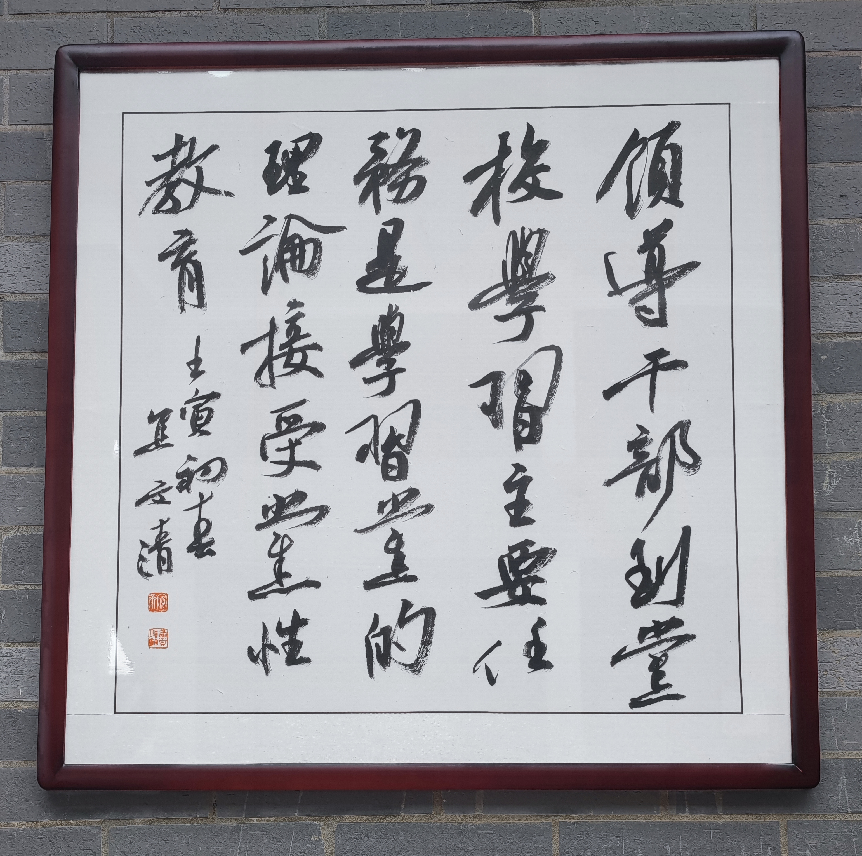 領導干部到黨
校學習主要任
務是學習党的
理論接受党性
教育
壬寅初春
文清